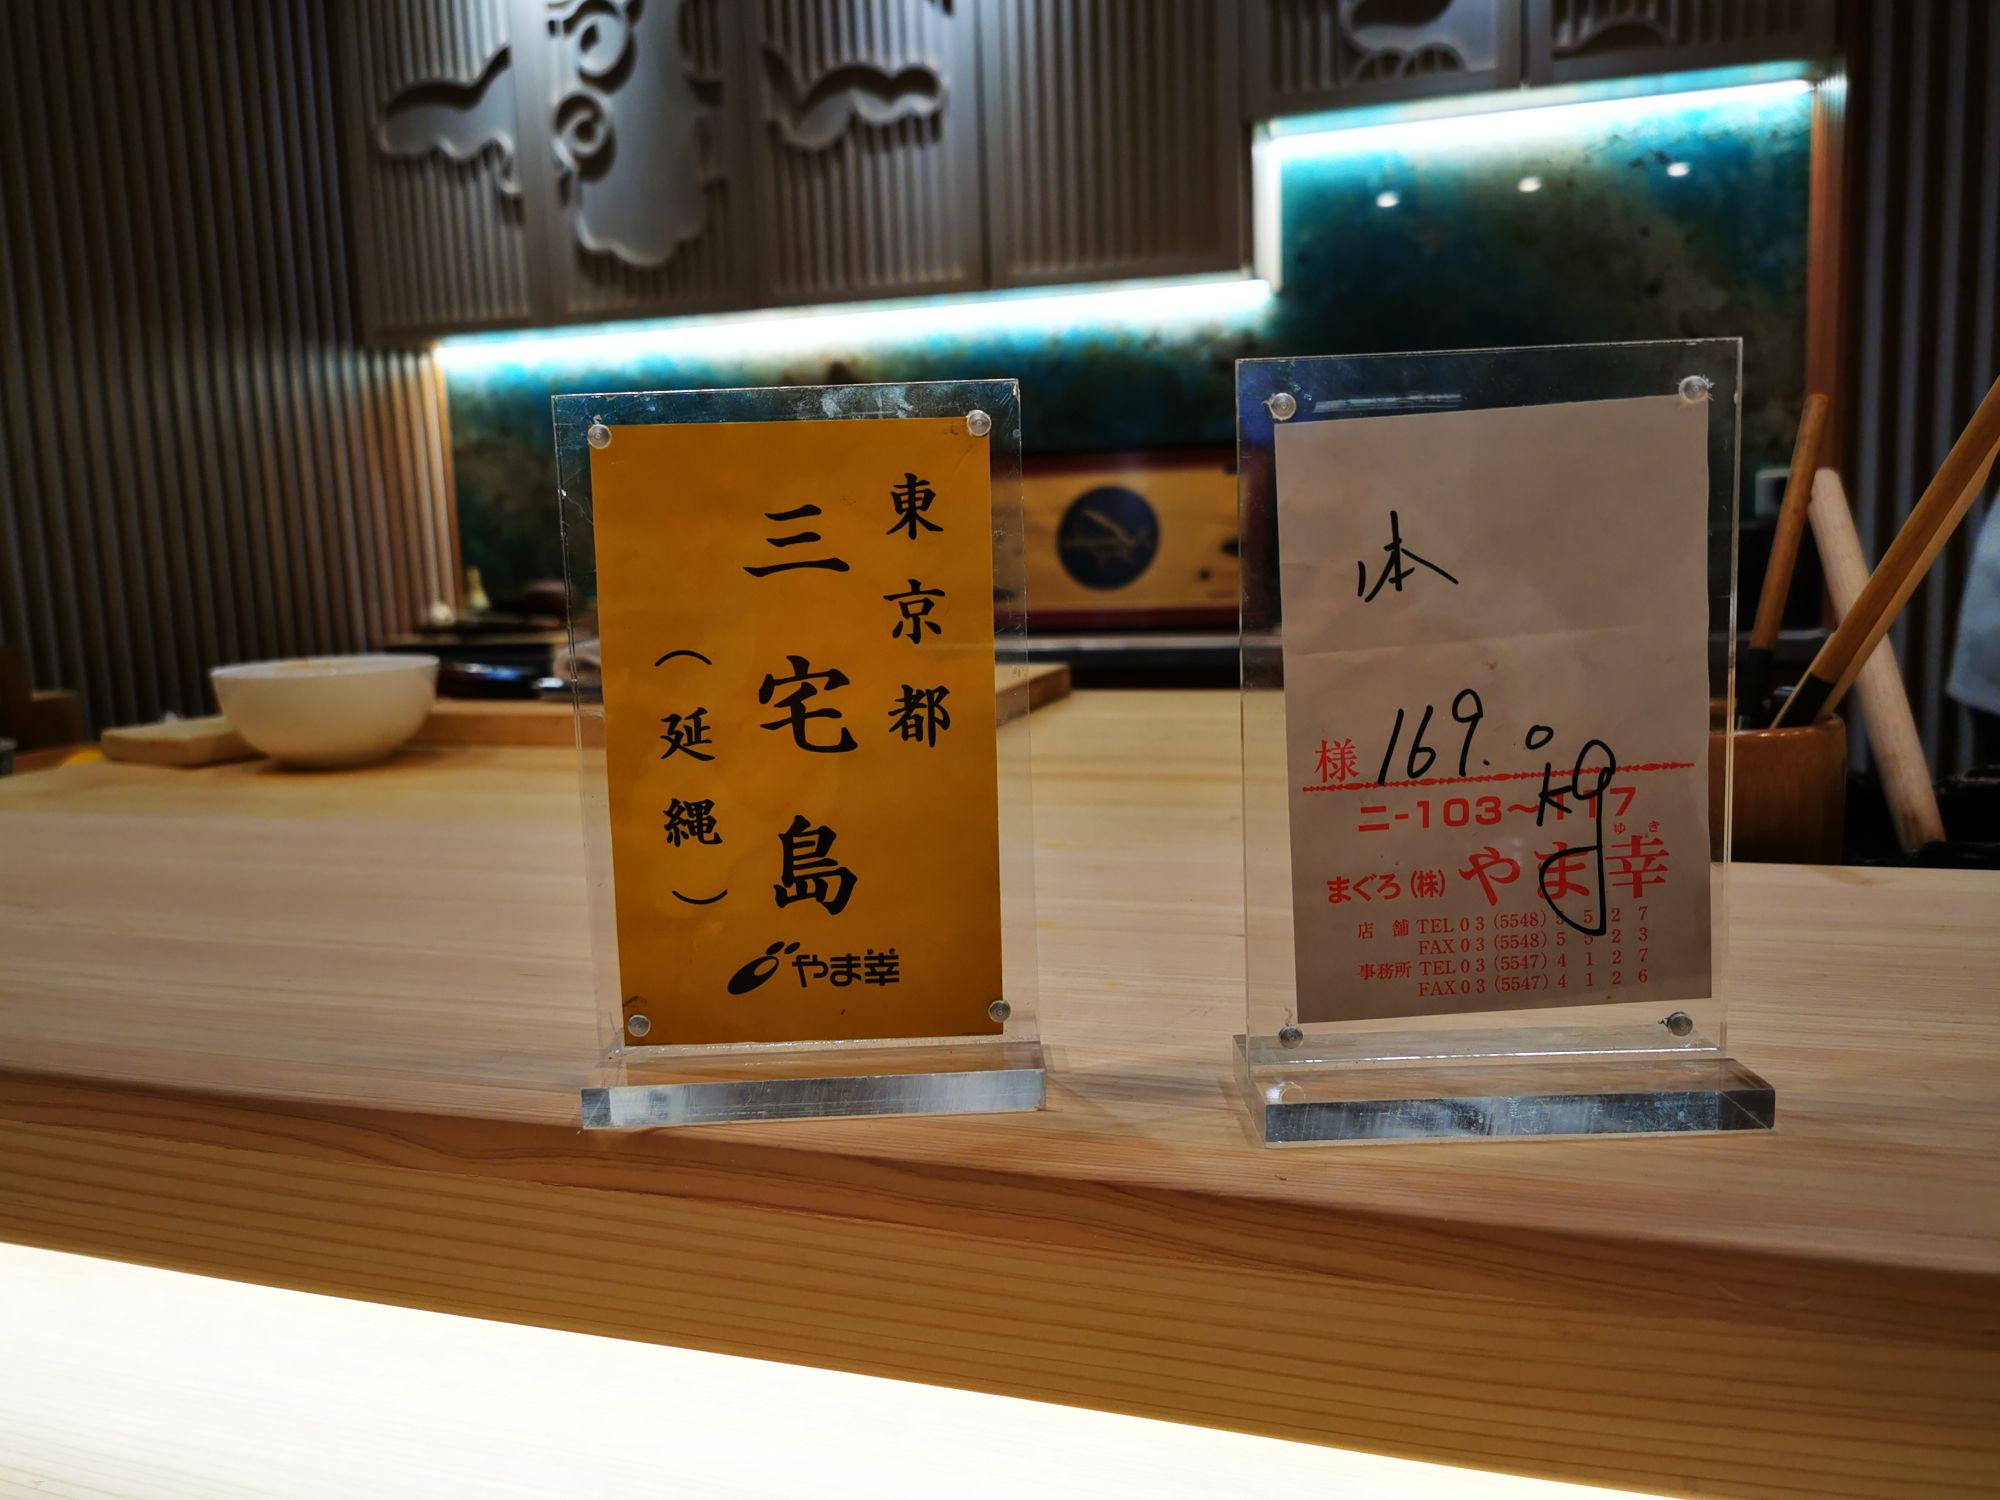 東京都
三宅島
（延縄）
やま幸
本
様 169.0kg
二-103〜117
ゆき
まぐろ(株)やま幸
店舗 TEL03(5548)5527
FAX03(5548)5523
事務所 TEL03(5547)4127
FAX03(5547)4126